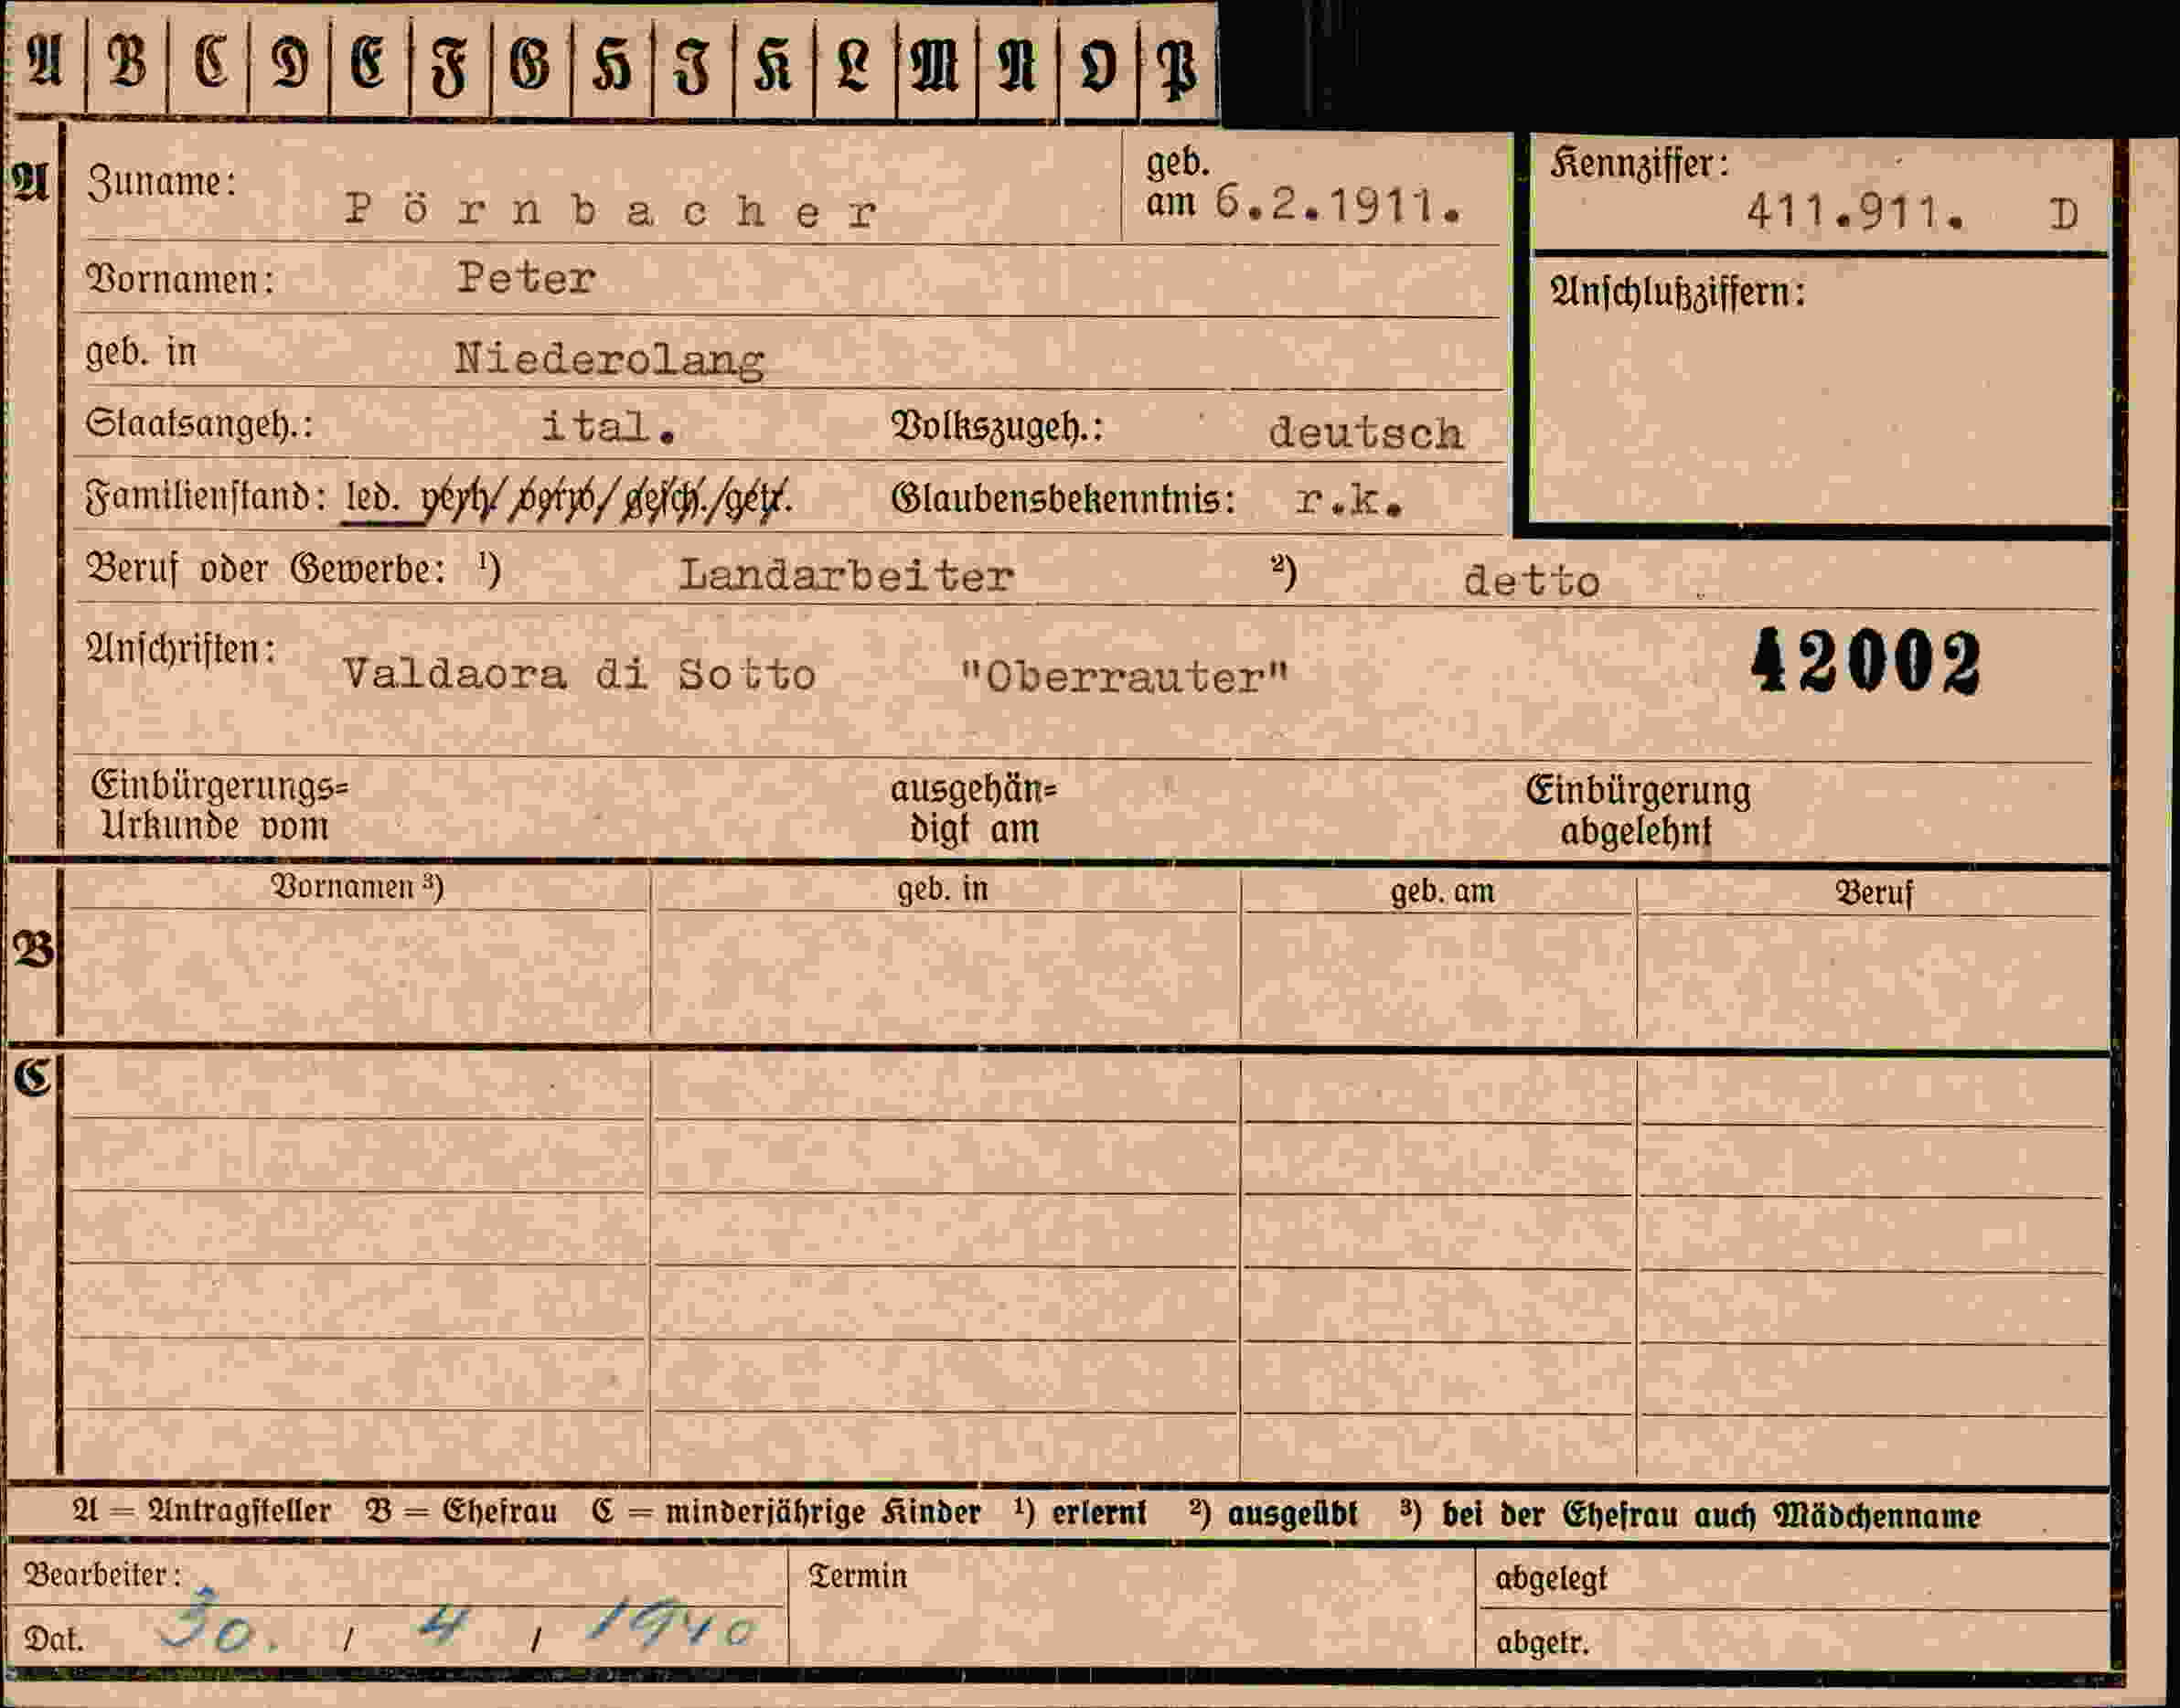 A B C D E F G H I K L M N O P
A Zuname: Pörnbacher geb. am 6.2.1911. Kennziffer: 411.911. D
Vornamen: Peter Anschlußziffern:
geb. in Niederolang
Staatsangeh.: ital. Volkszugeh.: deutsch
Familienstand: led. verh./verw./gesch./getr. Glaubensbekenntnis: r.k.
Beruf oder Gewerbe: ¹) Landarbeiter ²) detto
Anschriften: Valdaora di Sotto "Oberrauter" 42002
Einbürgerungs= ausgehän= Einbürgerung
Urkunde vom digt am abgelehnt
Vornamen ³) geb. in geb. am Beruf
B
C
A = Antragsteller B = Ehefrau C = minderjährige Kinder ¹) erlernt ²) ausgeübt ³) bei der Ehefrau auch Mädchenname
Bearbeiter: Termin abgelegt
Dat. 30. / 4 / 1940 abgetr.